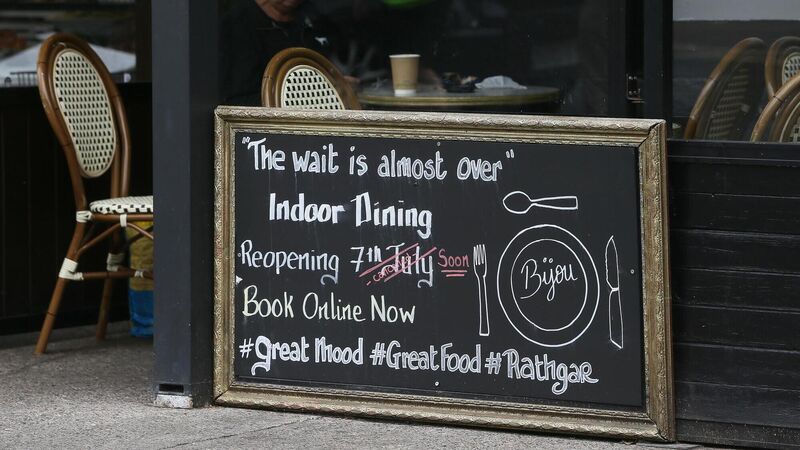 "The wait is almost over"
Indoor Dining
Reopening 7th July Soon
Book Online Now
#great Mood #Great Food # Rathgar
Bijou